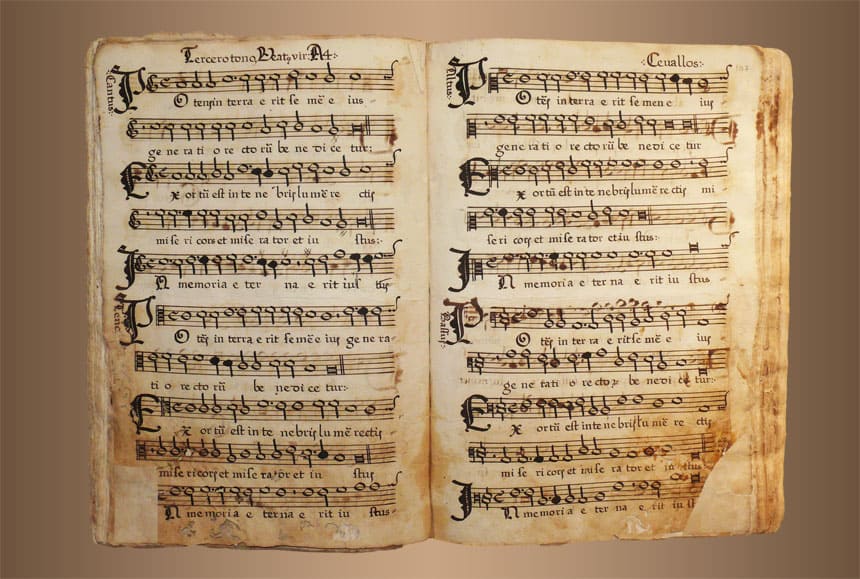 Tercero tono, Beatꝰ vir: A4:
Cantus:
PO tensin terra e rit se mē e ius
ge ne ra ti o re cto rū be ne di ce tur:
Ex or tū est in te ne bris lu mē re ctis
mi se ri cors et mi se ra tor et iu stus:
IN memoria e ter na e rit ius tus
Tenor
PO tēs in terra e rit se mē e ius ge ne ra-
ti o re cto rū be ne di ce tur:
Ex or tū est in te ne bris lu mē rectis
mi se ri cors et mi se ra tor et iu stus
IN memoria e ter na e rit iu stus
:Ceuallos:
Altus:
PO tēs in terra e rit se men e ius
ge ne ra ti o re cto rū be ne di ce tur
Ex or tū est in te ne bris lu mē re ctis mi
se ri cors et mi se ra tor et iu stus:
IN memoria e ter na e rit iu stus
Bassus:
PO tēs in ter ra e rit se mē e ius
ge ne rati o re ctorū be nedi ce tur:
Ex or tū est in te ne bris lu mē re ctis
mi se ri cors et mi se ra tor et iu stus
IN memoria e ter na e rit iu